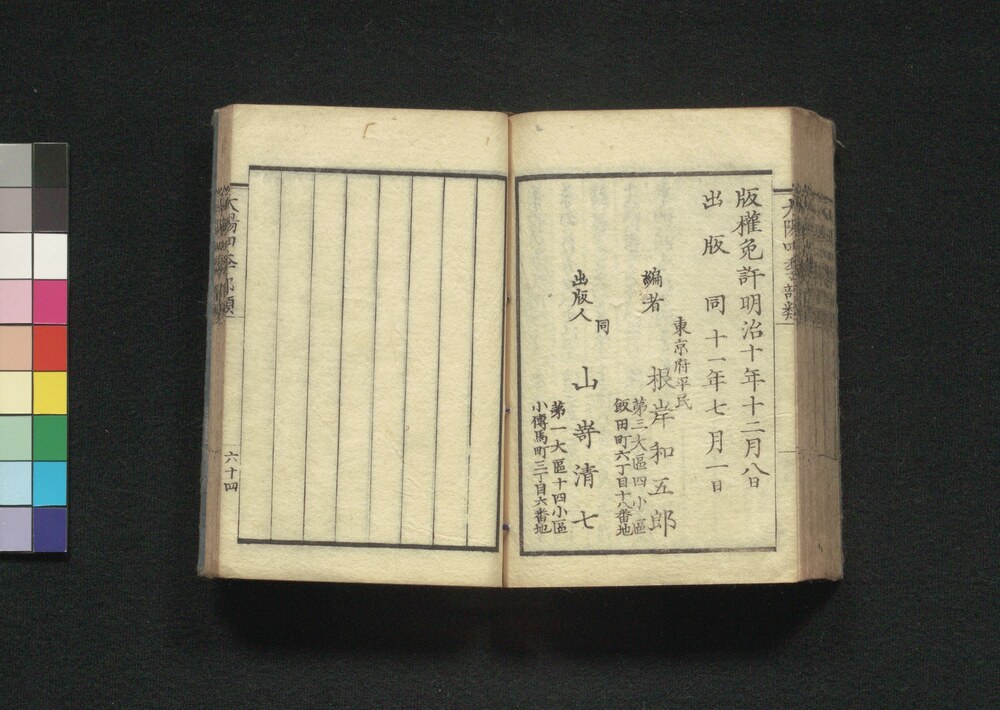 版權免許明治十年十二月八日
出版 同十一年七月一日
東京府平民
編者 根岸和五郎
第三大區四小區
飯田町六丁目十八番地
同
出版人 山嵜清七
第一大區十四小區
小傳馬町三丁目六番地
六十四